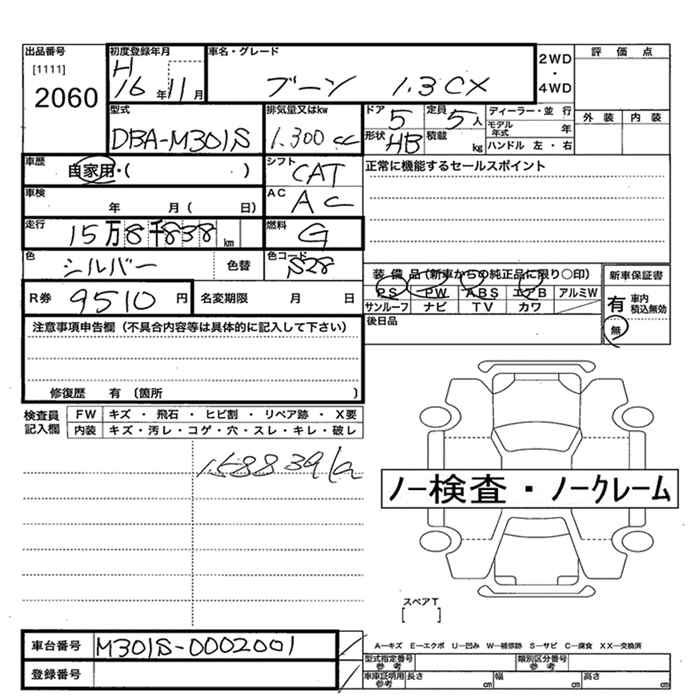 出品番号
[1111]
2060
初度登録年月
H
16年11月
車名・グレード
ブーン 1.3CX
2WD
・
4WD
評価点
外装 内装
型式
DBA-M301S
排気量又はkw
1.300cc
ドア 5
定員 5人
形状 HB
積載 kg
ディーラー・並行
モデル年式 年
ハンドル 左・右
車歴
自家用・( )
シフト
CAT
正常に機能するセールスポイント
車検
年 月( 日)
AC
AC
走行
15万8千838km
燃料
G
色
シルバー
色替
色コード
S28
装備品(新車からの純正品に限り○印)
PS PW ABS エアB アルミW
サンルーフ ナビ TV カワ
後日品
新車保証書
有 車内積込無効
無
R券
9510円
名変期限 月 日
注意事項申告欄(不具合内容等は具体的に記入して下さい)
修復歴 有(箇所 )
検査員記入欄
FW キズ・飛石・ヒビ割・リペア跡・X要
内装 キズ・汚レ・コゲ・穴・スレ・キレ・破レ
158839km
ノー検査・ノークレーム
スペアT
[ ]
車台番号
M301S-0002001
登録番号
A−キズ E−エクボ U−凹み W−補修跡 S−サビ C−腐食 XX−交換済
型式指定番号
参考
類別区分番号
参考
車庫証明用参考
長さ cm
幅 cm
高さ cm